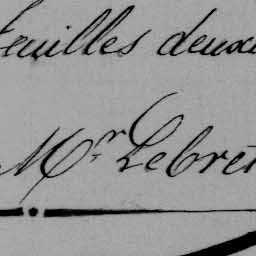 feuilles deux
Mr Lebret